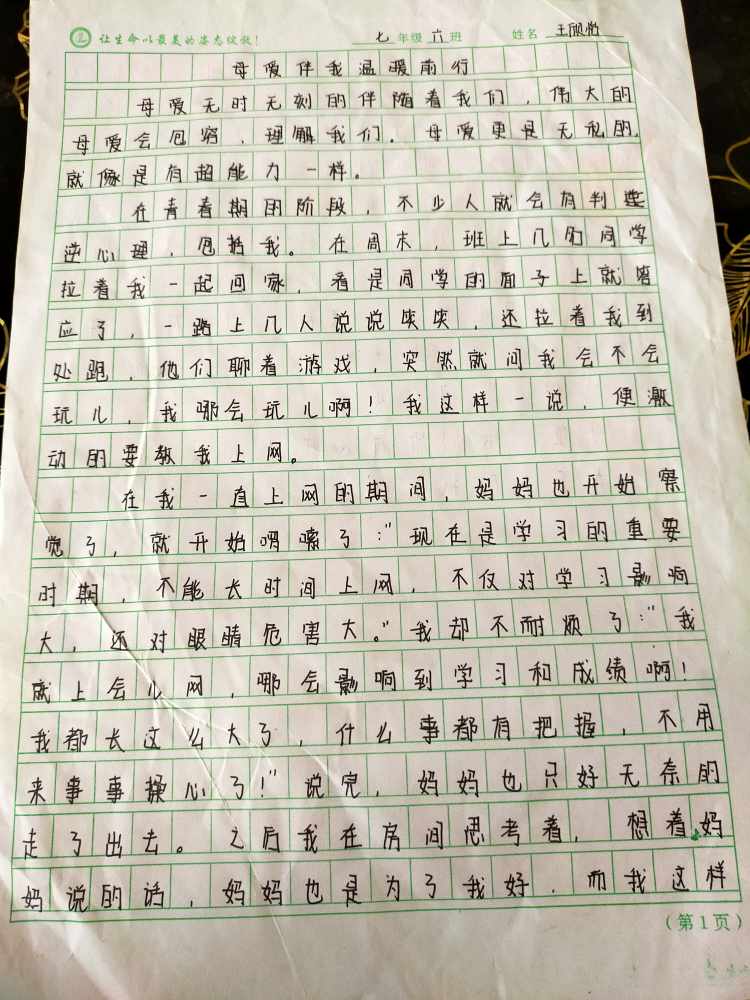 让生命以最美的姿态绽放!　七年级六班　姓名 王欣怡
母爱伴我温暖前行
母爱无时无刻的伴随着我们，伟大的
母爱会包容，理解我们。母爱更是无私的，
就像是有超能力一样。
在青春期的阶段，不少人就会有判
逆心理，包括我。在周末，班上几的同学
拉着我一起回家，看是同学的面子上就答
应了，一路上几人说说笑笑，还拉着我到
处跑，他们聊着游戏，突然就问我会不会
玩儿，我哪会玩儿啊！我这样一说，便激
动的要教我上网。
在我一直上网的期间，妈妈也开始察
觉了，就开始唠嗦了："现在是学习的重要
时期，不能长时间上网，不仅对学习影响
大，还对眼睛危害大。"我却不耐烦了："我
就上会儿网，哪会影响到学习和成绩啊！
我都长这么大了，什么事都有把握，不用
来事事操心了！"说完，妈妈也只好无奈的
走了出去。之后我在房间思考着，想着妈
妈说的话，妈妈也是为了我好，而我这样
（第1页）